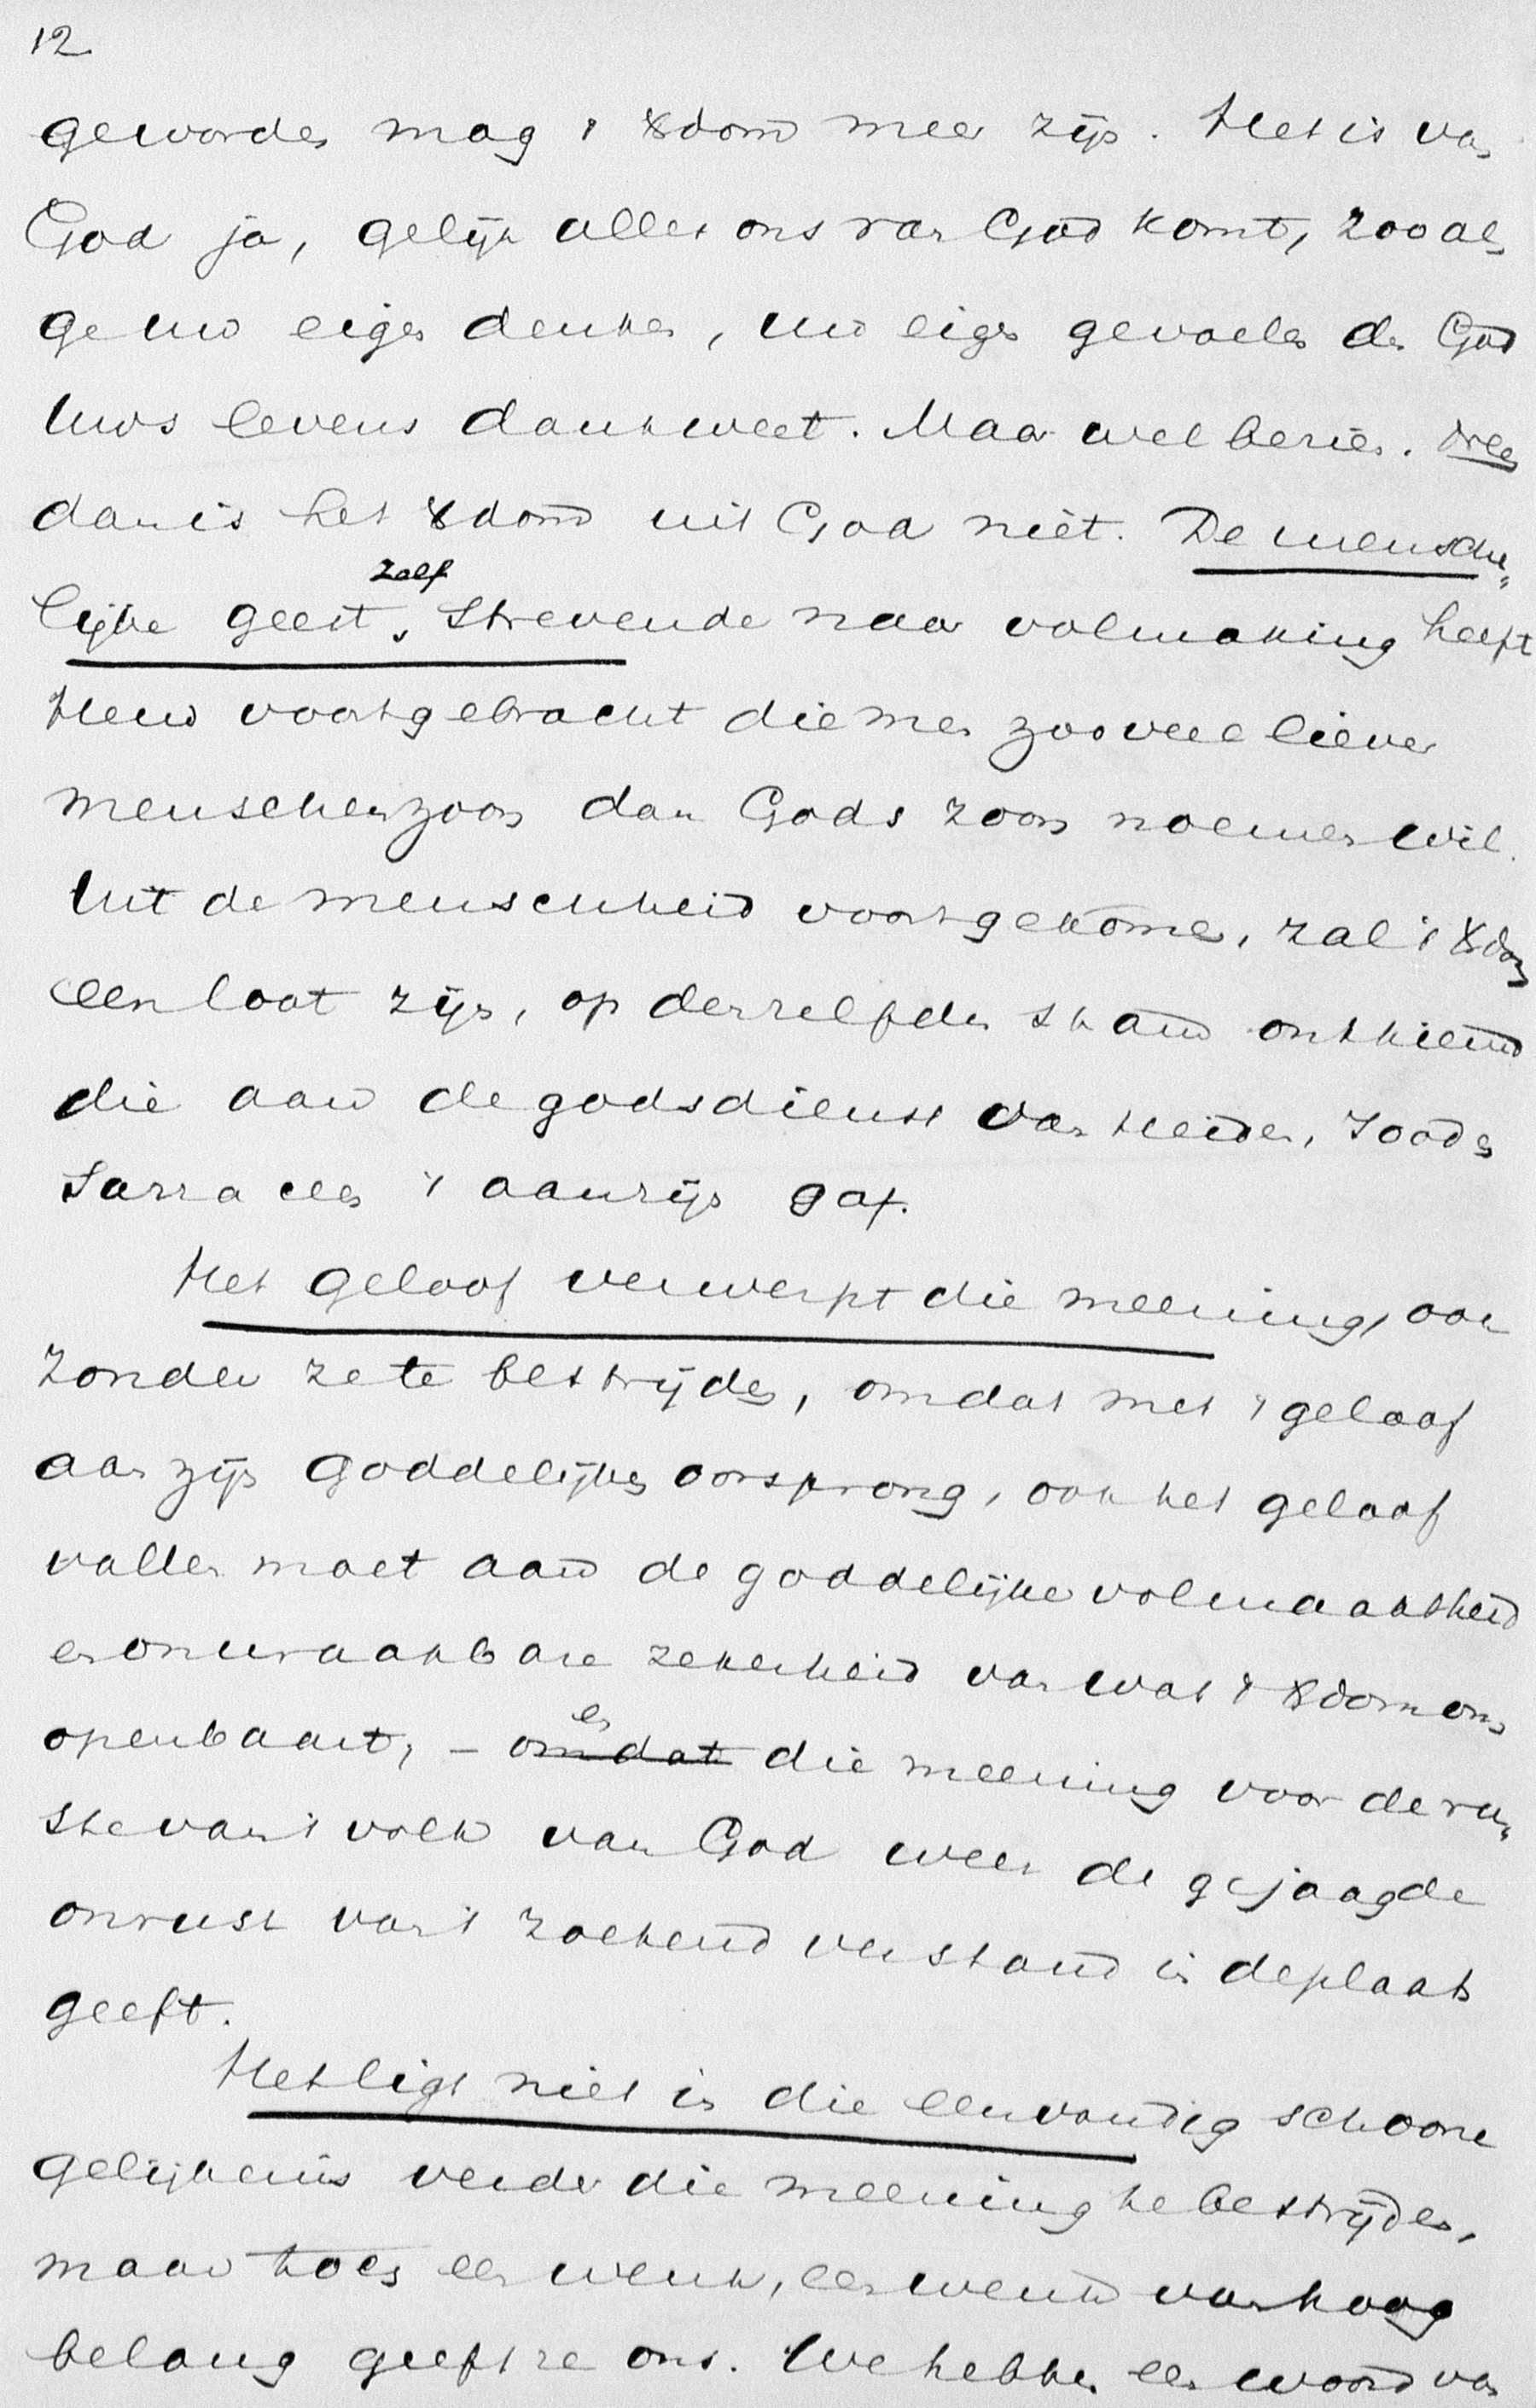 12
geworden mag 't Xdom meer zijn. Het is van
God ja, gelijk alles ons van God komt, zooals
ge uw eigen denken, uw eigen gevoelen den God
uws levens dankweet. Maar wel bezien.
dan is het Xdom uit God niet. De mensche„
lijke geest, zelf strevende naar volmaking heeft
Hem voortgebracht die men zooveel liever
menschenzoon dan Gods zoon noemen wil.
Uit de menschheid voortgekomen, zal 't Xdom
een loot zijn, op denzelfden stam ontkiemd
die aan de godsdienst van Heiden, Joods
Sarraceen 't aanzijn gaf.
Het geloof verwerpt die meening, ook
zonder ze te bestrijden, omdat met 't geloof
aan zijn goddelijken oorsprong, ook het geloof
vallen moet aan de goddelijke volmaaktheid
en onwraakbare zekerheid van wat 't Xdom ons
openbaart, - omdat en die meening voor de ru„
ste van 't volk van God weer de gejaagde
onrust van 't zoekend verstand in de plaats
geeft.
Het ligt niet in die eenvoudig schoone
gelijkenis verder die meening te bestrijden,
maar toch een wenk, een wenk van hoog
belang geeft ze ons. We hebben een woord van